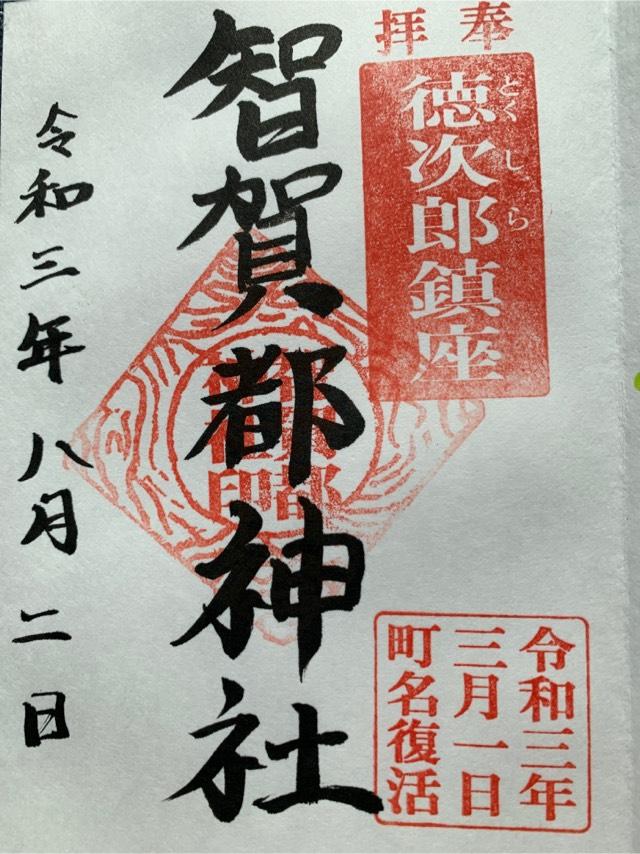 奉拝
徳次郎鎮座
とくじら
令和三年
三月一日
町名復活
智賀都神社
令和三年八月二日